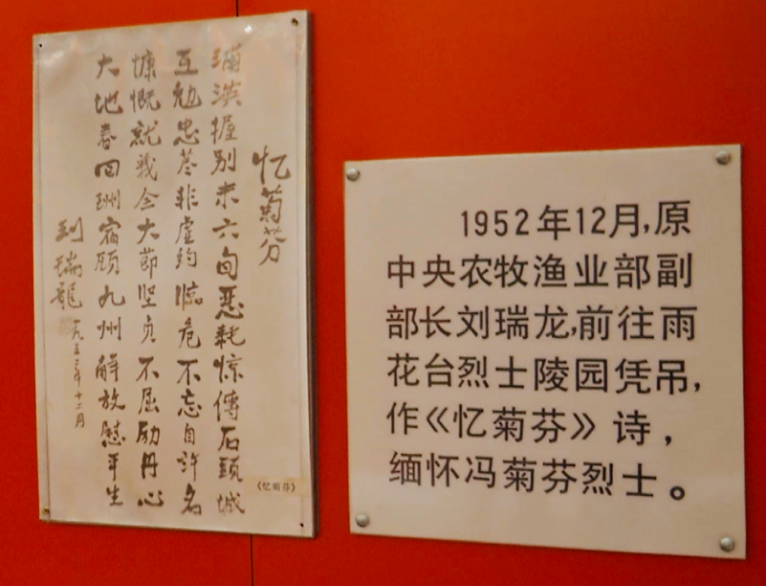 忆菊芬
握别未六旬恶耗惊傳石頭城
互勉忠荩非虚约临危不忘自许名
慷慨就义全大节坚贞不屈励丹心
大地春回酬宿愿九州解放慰平生
刘瑞龍 一九五二年十二月
《忆菊芬》
1952年12月,原
中央农牧渔业部副
部长刘瑞龙,前往雨
花台烈士陵园凭吊,
作《忆菊芬》诗,
缅怀冯菊芬烈士。